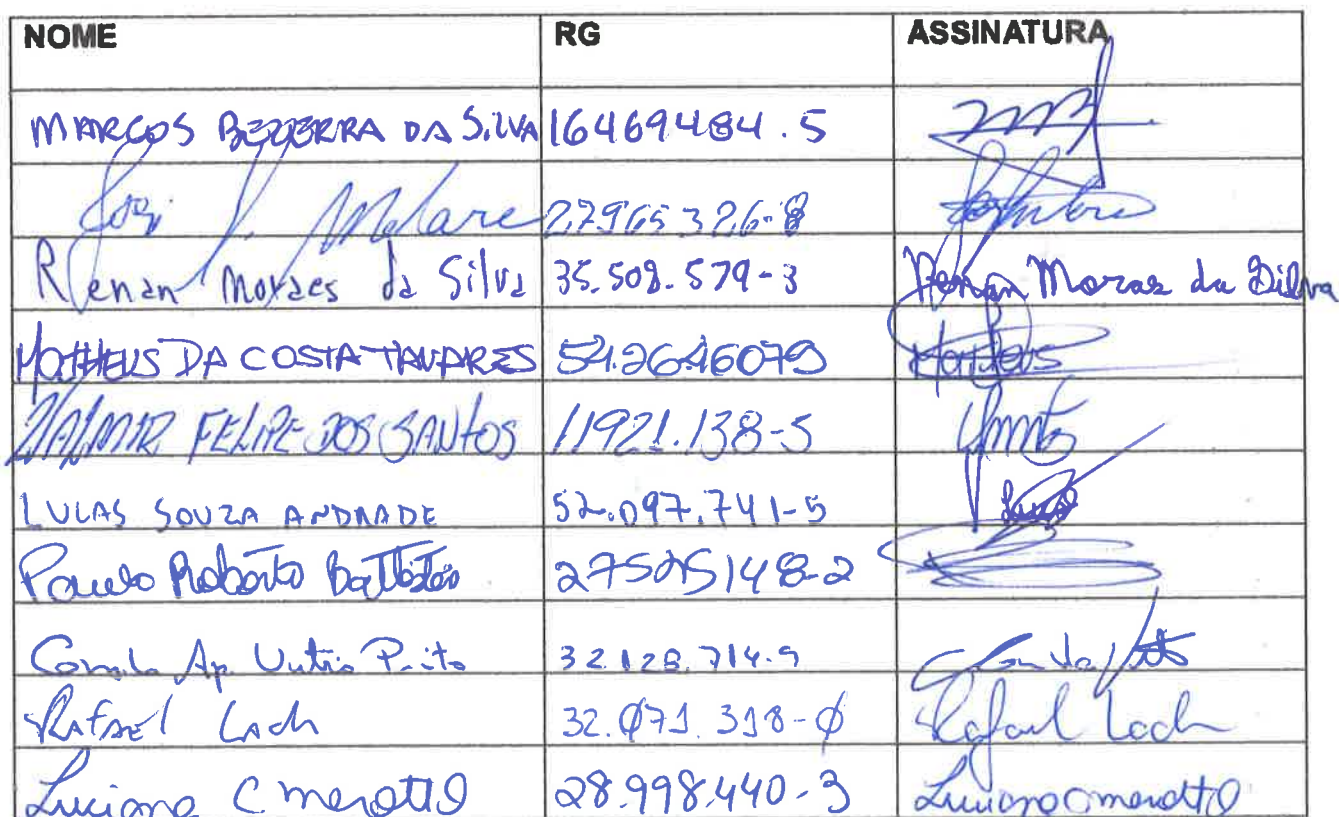 NOME RG ASSINATURA
MARCOS BEZERRA DA SILVA 16469484.5
José 27965326-8
Renan Moraes da Silva 35.508.579-3 Renan Moraes da Silva
MATHEUS DA COSTA TAVARES 54.2646079 Matheus
VALMIR FELIPE DOS SANTOS 11921.138-5
LUCAS SOUZA ANDRADE 52.097.741-5 Lucas
Paulo Roberto Battistão 27525148-2
Ap. 32.128.714-9
RAFAEL Lach 32.071.318-0 Rafael Lach
Luciano C 28.998.440-3 Luciano C